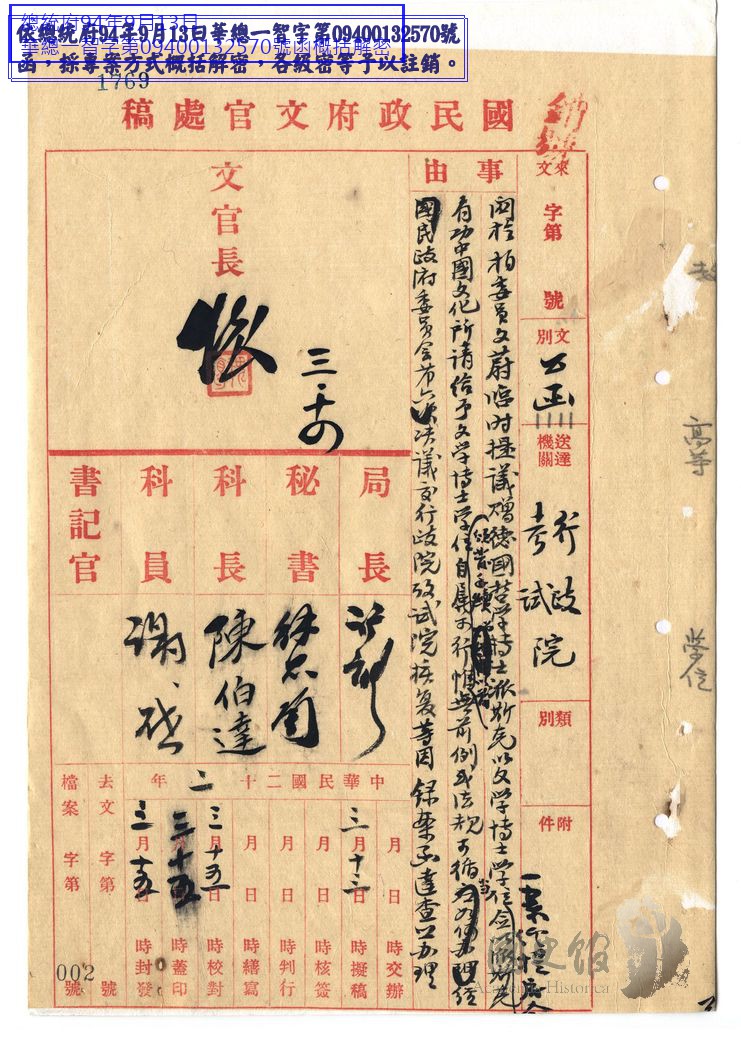 總統府94年9月13日
華總一智字第09400132570號函概括解密
依總統府94年9月13日華總一智字第09400132570號
函，採專案方式概括解密，各級密等予以註銷。
1769
國民政府文官處稿
來文 字第 號
文別 公函
送達機關 行政 考試 院
類別
附件
事由
關於柏委員文蔚臨時提議贈德國哲學博士
以文學博士學位
有功中國文化所請給予文學博士學位自屬可行惟無前例或法規可循
國民政府委員會第六次決議交行政院考試院核復等因錄案函達查照辦理
文官長
三、十四
局長
秘書
科長 陳伯達
科員 謝
書記官
中華民國二十二年
月 日 時交辦
三月十三日 時擬稿
月 日 時核簽
月 日 時判行
月 日 時繕寫
三月十五日 時校對
三月十五日 時蓋印
三月十五日 時封發
去文 字第 號
檔案 字第 號
002
高等
學位
國史館
Academia Historica